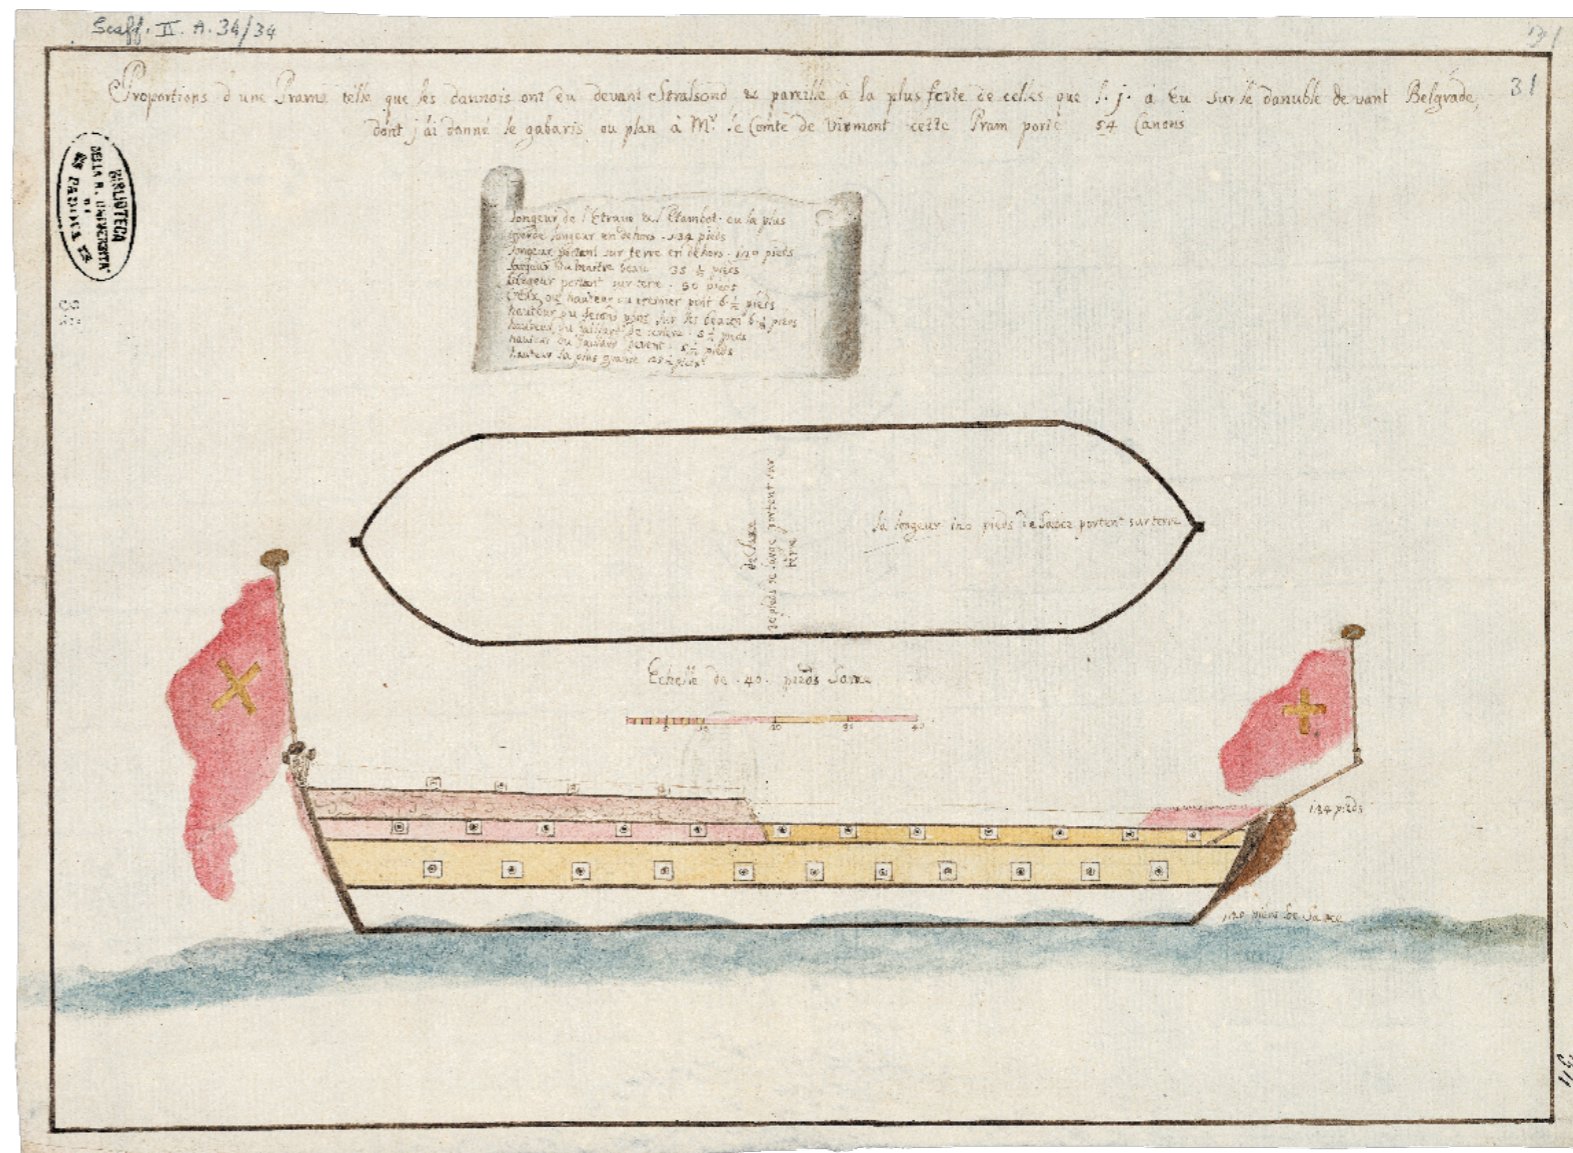 Scaff. II. A. 34/34
31
Proportions d'une Prame telle que les dannois ont eu devant Stralsond & pareille à la plus forte de celles que l. j. a eu sur le danube devant Belgrade,
dont j'ai donné le gabaris ou plan à Mr. le Comte de Virmont cette Pram porte 54 Canons
31
BIBLIOTECA
DELLA R. UNIVERSITA
DI
PADOVA
longeur de l'Etrave & l'Etambot ou la plus
grande longeur en dehors . 134 pieds
longeur portant sur terre en dehors . 120 pieds
du maitre beau 35 ½ pieds
portant sur terre . 30 pieds
hauteur du premier pont 6 ½ pieds
hauteur du second pont sur les beaux 6 ½ pieds
hauteur du gaillard de derriere . 5 ½ pieds
hauteur du gaillard devant . 5 ½ pieds
hauteur la plus grande 25 ½ pieds
de Saxe
pieds de large portent sur
terre
la longeur 120 pieds de Saxe portent sur terre
Echelle de 40 pieds Saxe
10 20 40
134 pieds
120 pieds de Saxe